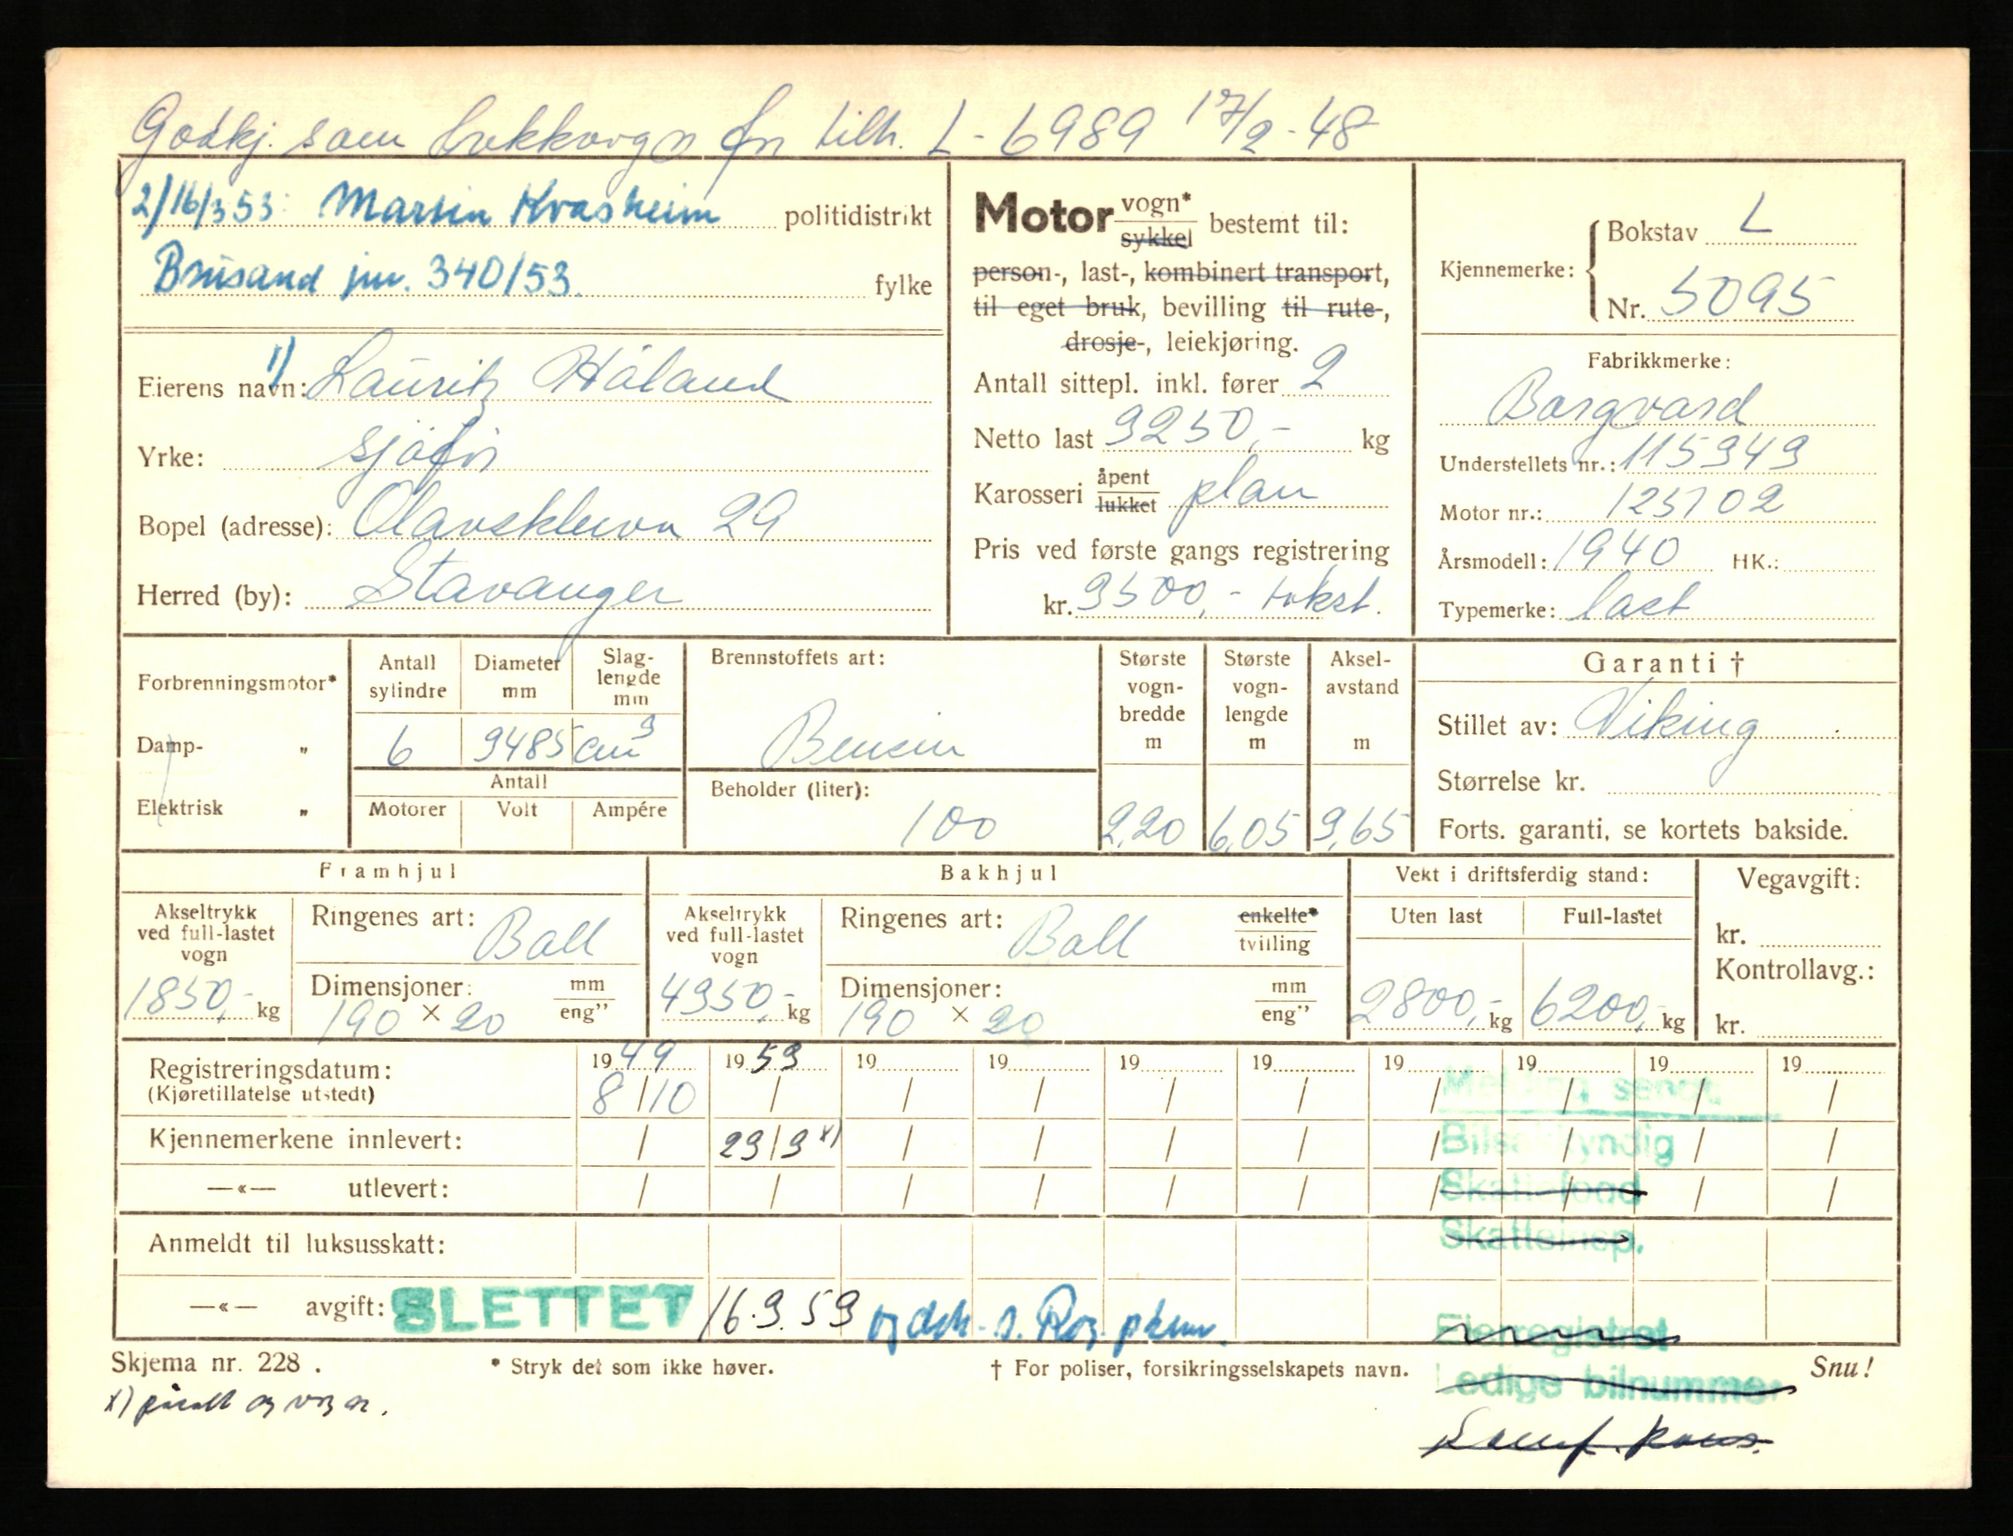 Godkj. som trekkvogn for tilh. L-6989 17/2-48
2/16/3 53: Martin Kvasheim politidistrikt
Brusand jnr. 340/53. fylke
1)
Eierens navn: Lauritz Håland
Yrke: sjåfør
Bopel (adresse): Olavskleiva 29
Herred (by): Stavanger
Motor vogn* sykkel bestemt til:
person-, last-, kombinert transport,
til eget bruk, bevilling til rute-,
drosje-, leiekjøring.
Antall sittepl. inkl. fører 2
Netto last 3250,- kg
Karosseri åpent lukket plan
Pris ved første gangs registrering
kr. 3500,- takst.
Kjennemerke: Bokstav L
Nr. 5095
Fabrikkmerke:
Borgvard
Understellets nr.: 115343
Motor nr.: 123702
Årsmodell: 1940 HK.:
Typemerke: last
Forbrenningsmotor*
Damp- „
Elektrisk „
Antall sylindre Diameter mm Slaglengde mm
6 3485 cm3
Antall
Motorer Volt Ampére
Brennstoffets art:
Bensin
Beholder (liter):
100
Største vogn-bredde m 2,20
Største vogn-lengde m 6,05
Aksel-avstand m 3,65
Garanti †
Stillet av: Viking
Størrelse kr.
Forts. garanti, se kortets bakside.
Framhjul
Akseltrykk ved full-lastet vogn
1850,- kg
Ringenes art: Ball
Dimensjoner: mm eng”
190 × 20
Bakhjul
Akseltrykk ved full-lastet vogn
4350,- kg
Ringenes art: Ball enkelte* tvilling
Dimensjoner: mm eng”
190 × 20
Vekt i driftsferdig stand:
Uten last Full-lastet
2800,- kg 6200,- kg
Vegavgift:
kr.
Kontrollavg.:
kr.
Registreringsdatum: 1949 1953 19 19 19 19 19 19 19 19
(Kjøretillatelse utstedt) 8/10 / / / / / / / / /
Kjennemerkene innlevert: / 23/3 x) / / / / / / / /
—«— utlevert: / / / / / / / / / /
Anmeldt til luksusskatt:
—«— avgift: SLETTET 16.3.53 og dsk. s. Rog. pkm.
Melding sendt.
Bilsakkyndig
Skattefond
Skatteinsp.
Eierregistret
Ledige bilnummer
Skjema nr. 228 .
* Stryk det som ikke høver.
† For poliser, forsikringsselskapets navn.
Snu!